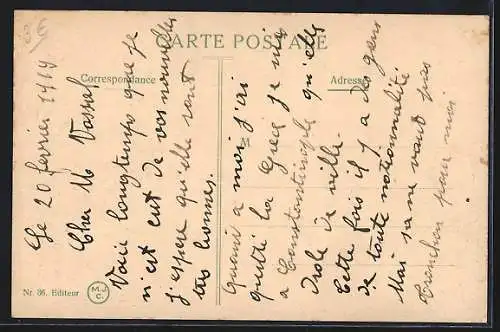 3 €
CARTE POSTALE
Correspondance
Adresse
Le 20 fevrier 1919
Cher M Vassal
Voici longtemps que je
n'est eut de vos nouvelles
j'espere qu'elle sont
tres bonnes.
Quand a moi j'ai
quitté la Grece je suis
a Constantinople qu'elle
drole de ville.
Cette fois il y a des gens
de toute nationnalité
Mai sa ne vaut pas
pour moi
Nr. 36. Editeur
M.J.C.